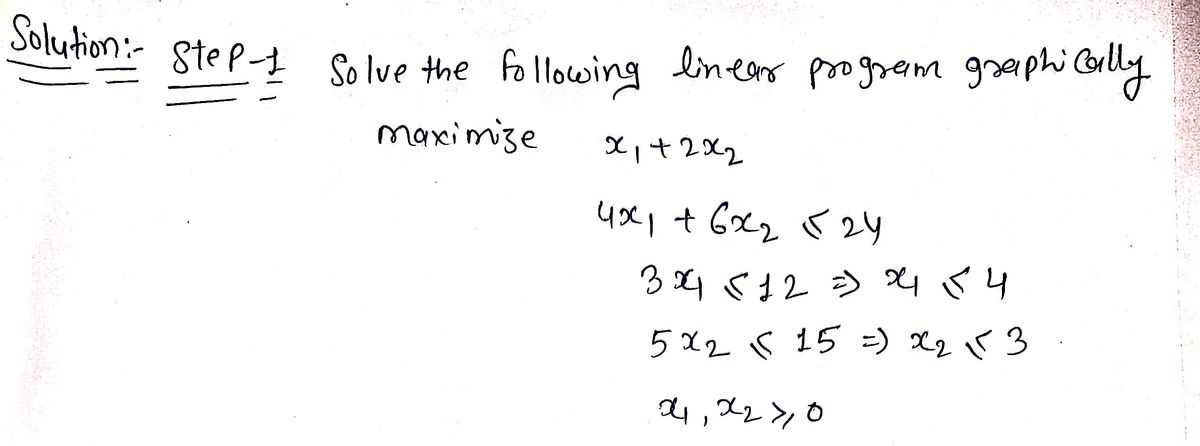 Solution:- Step-1 Solve the following linear program graphically
maximize x₁ + 2x₂
4x₁ + 6x₂ ≤ 24
3x₁ ≤ 12 ⇒ x₁ ≤ 4
5x₂ ≤ 15 ⇒ x₂ ≤ 3
x₁, x₂ ≥ 0